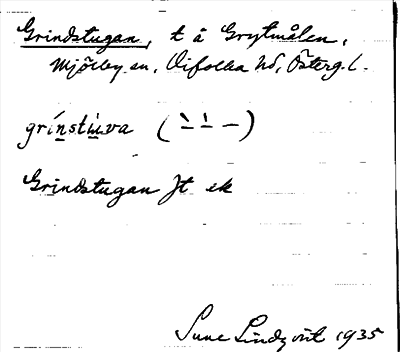 Grindstugan, t å Grytmålen,
Mjölby sn, Vifolka hd, Österg. l.
grínstùva (– – –)
Grindstugan Jt ek
Sune Lindqvist 1935